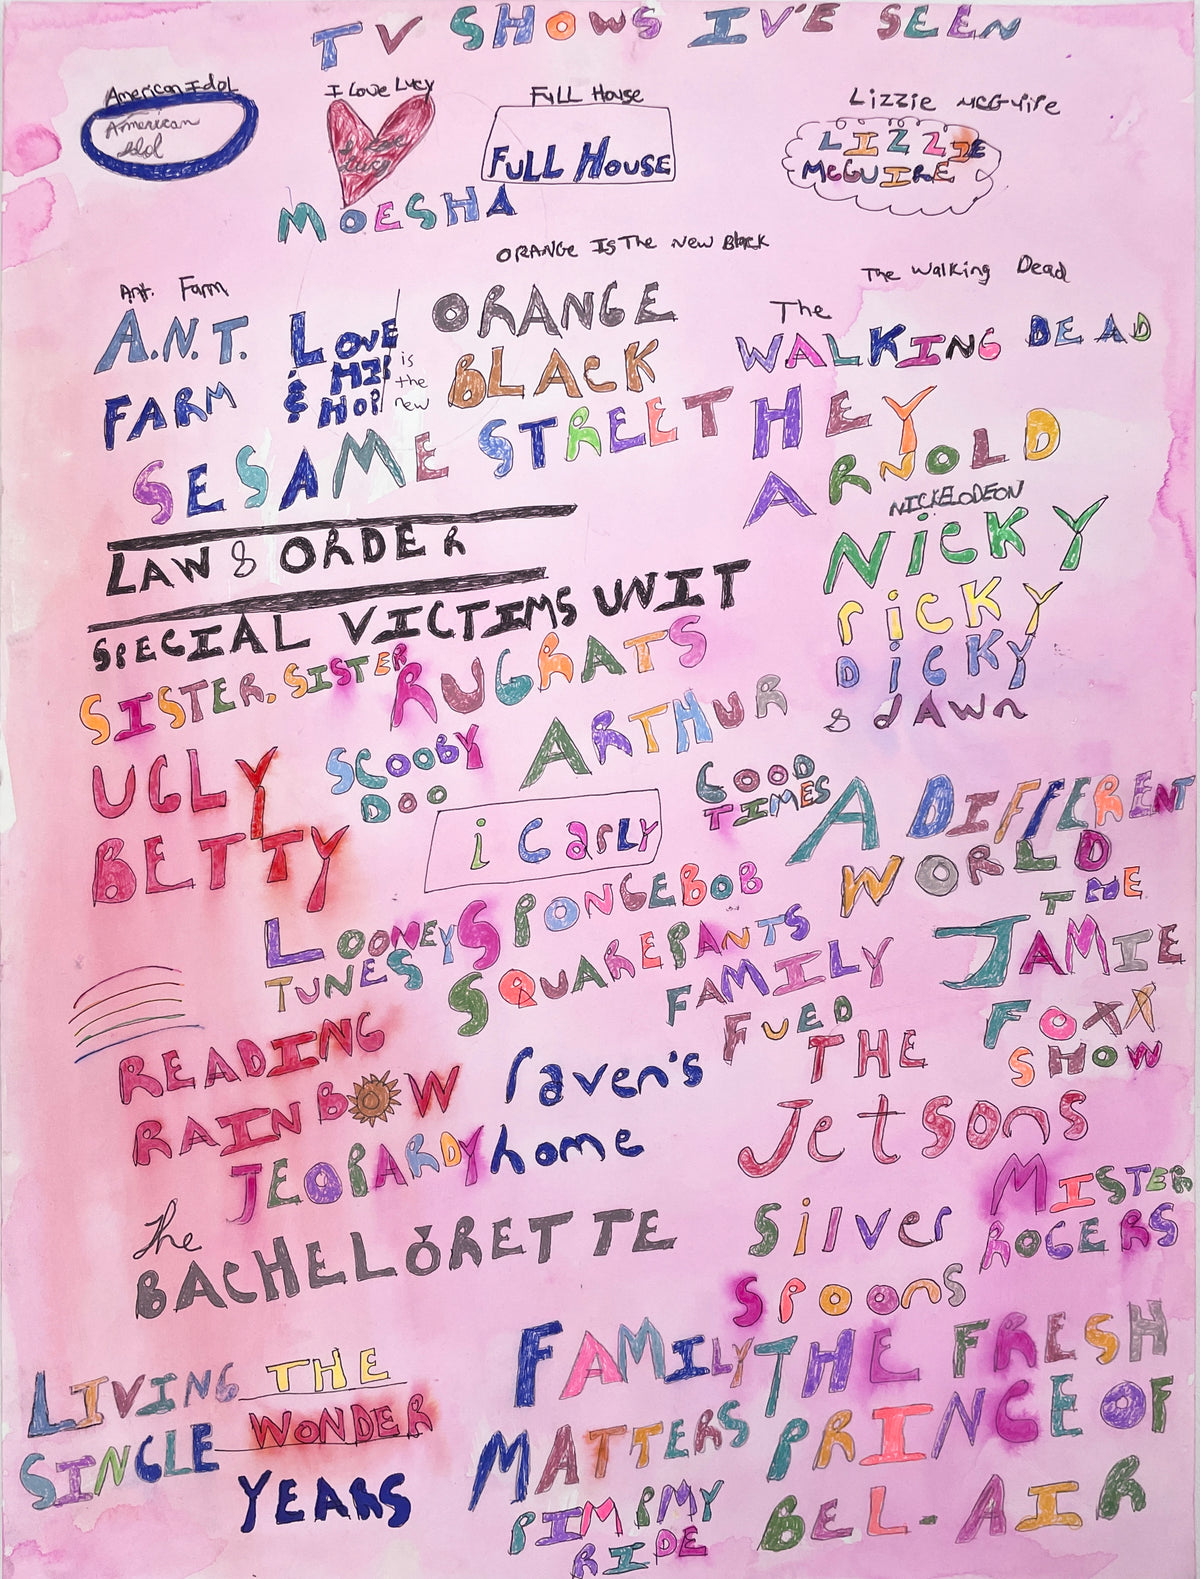 TV SHOWS I'VE SEEN
American Idol
American
Idol
I Love Lucy
I Love
Lucy
Full House
FULL HOUSE
Lizzie McGuire
LIZZIE
MCGUIRE
MOESHA
Ant. Farm
A.N.T.
FARM
LOVE
& HIP
HOP
ORANGE Is The New Black
ORANGE
is
the
new
BLACK
The Walking Dead
The
WALKING DEAD
SESAME STREET
HEY
ARNOLD
LAW & ORDER
SPECIAL VICTIMS UNIT
NICKELODEON
NiCKY
riCKY
DiCKY
& dAWn
SISTER, SISTER
RUGRATS
UGLY
BETTY
SCOOBY
DOO
ARTHUR
i Carly
GOOD
TIMES
A DIFFERENT
WORLD
LOONEY
TUNES
SPONGEBOB
SQUAREPANTS
FAMILY
FUED
THE
JAMIE
FOXX
SHOW
READING
RAINBOW
raven's
home
THE
Jetsons
JEOPARDY
The
BACHELORETTE
Silver
Spoons
MISTER
ROGERS
LIVING
SINGLE
THE
WONDER
YEARS
FAMILY
MATTERS
THE FRESH
PRINCE OF
BEL-AIR
PIMP MY
RIDE